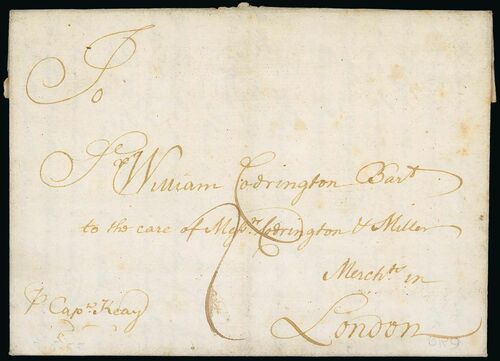 To
Sr. William Codrington Bart
to the care of Messrs Codrington & Miller
Merchts in
London
P Capn. Keay